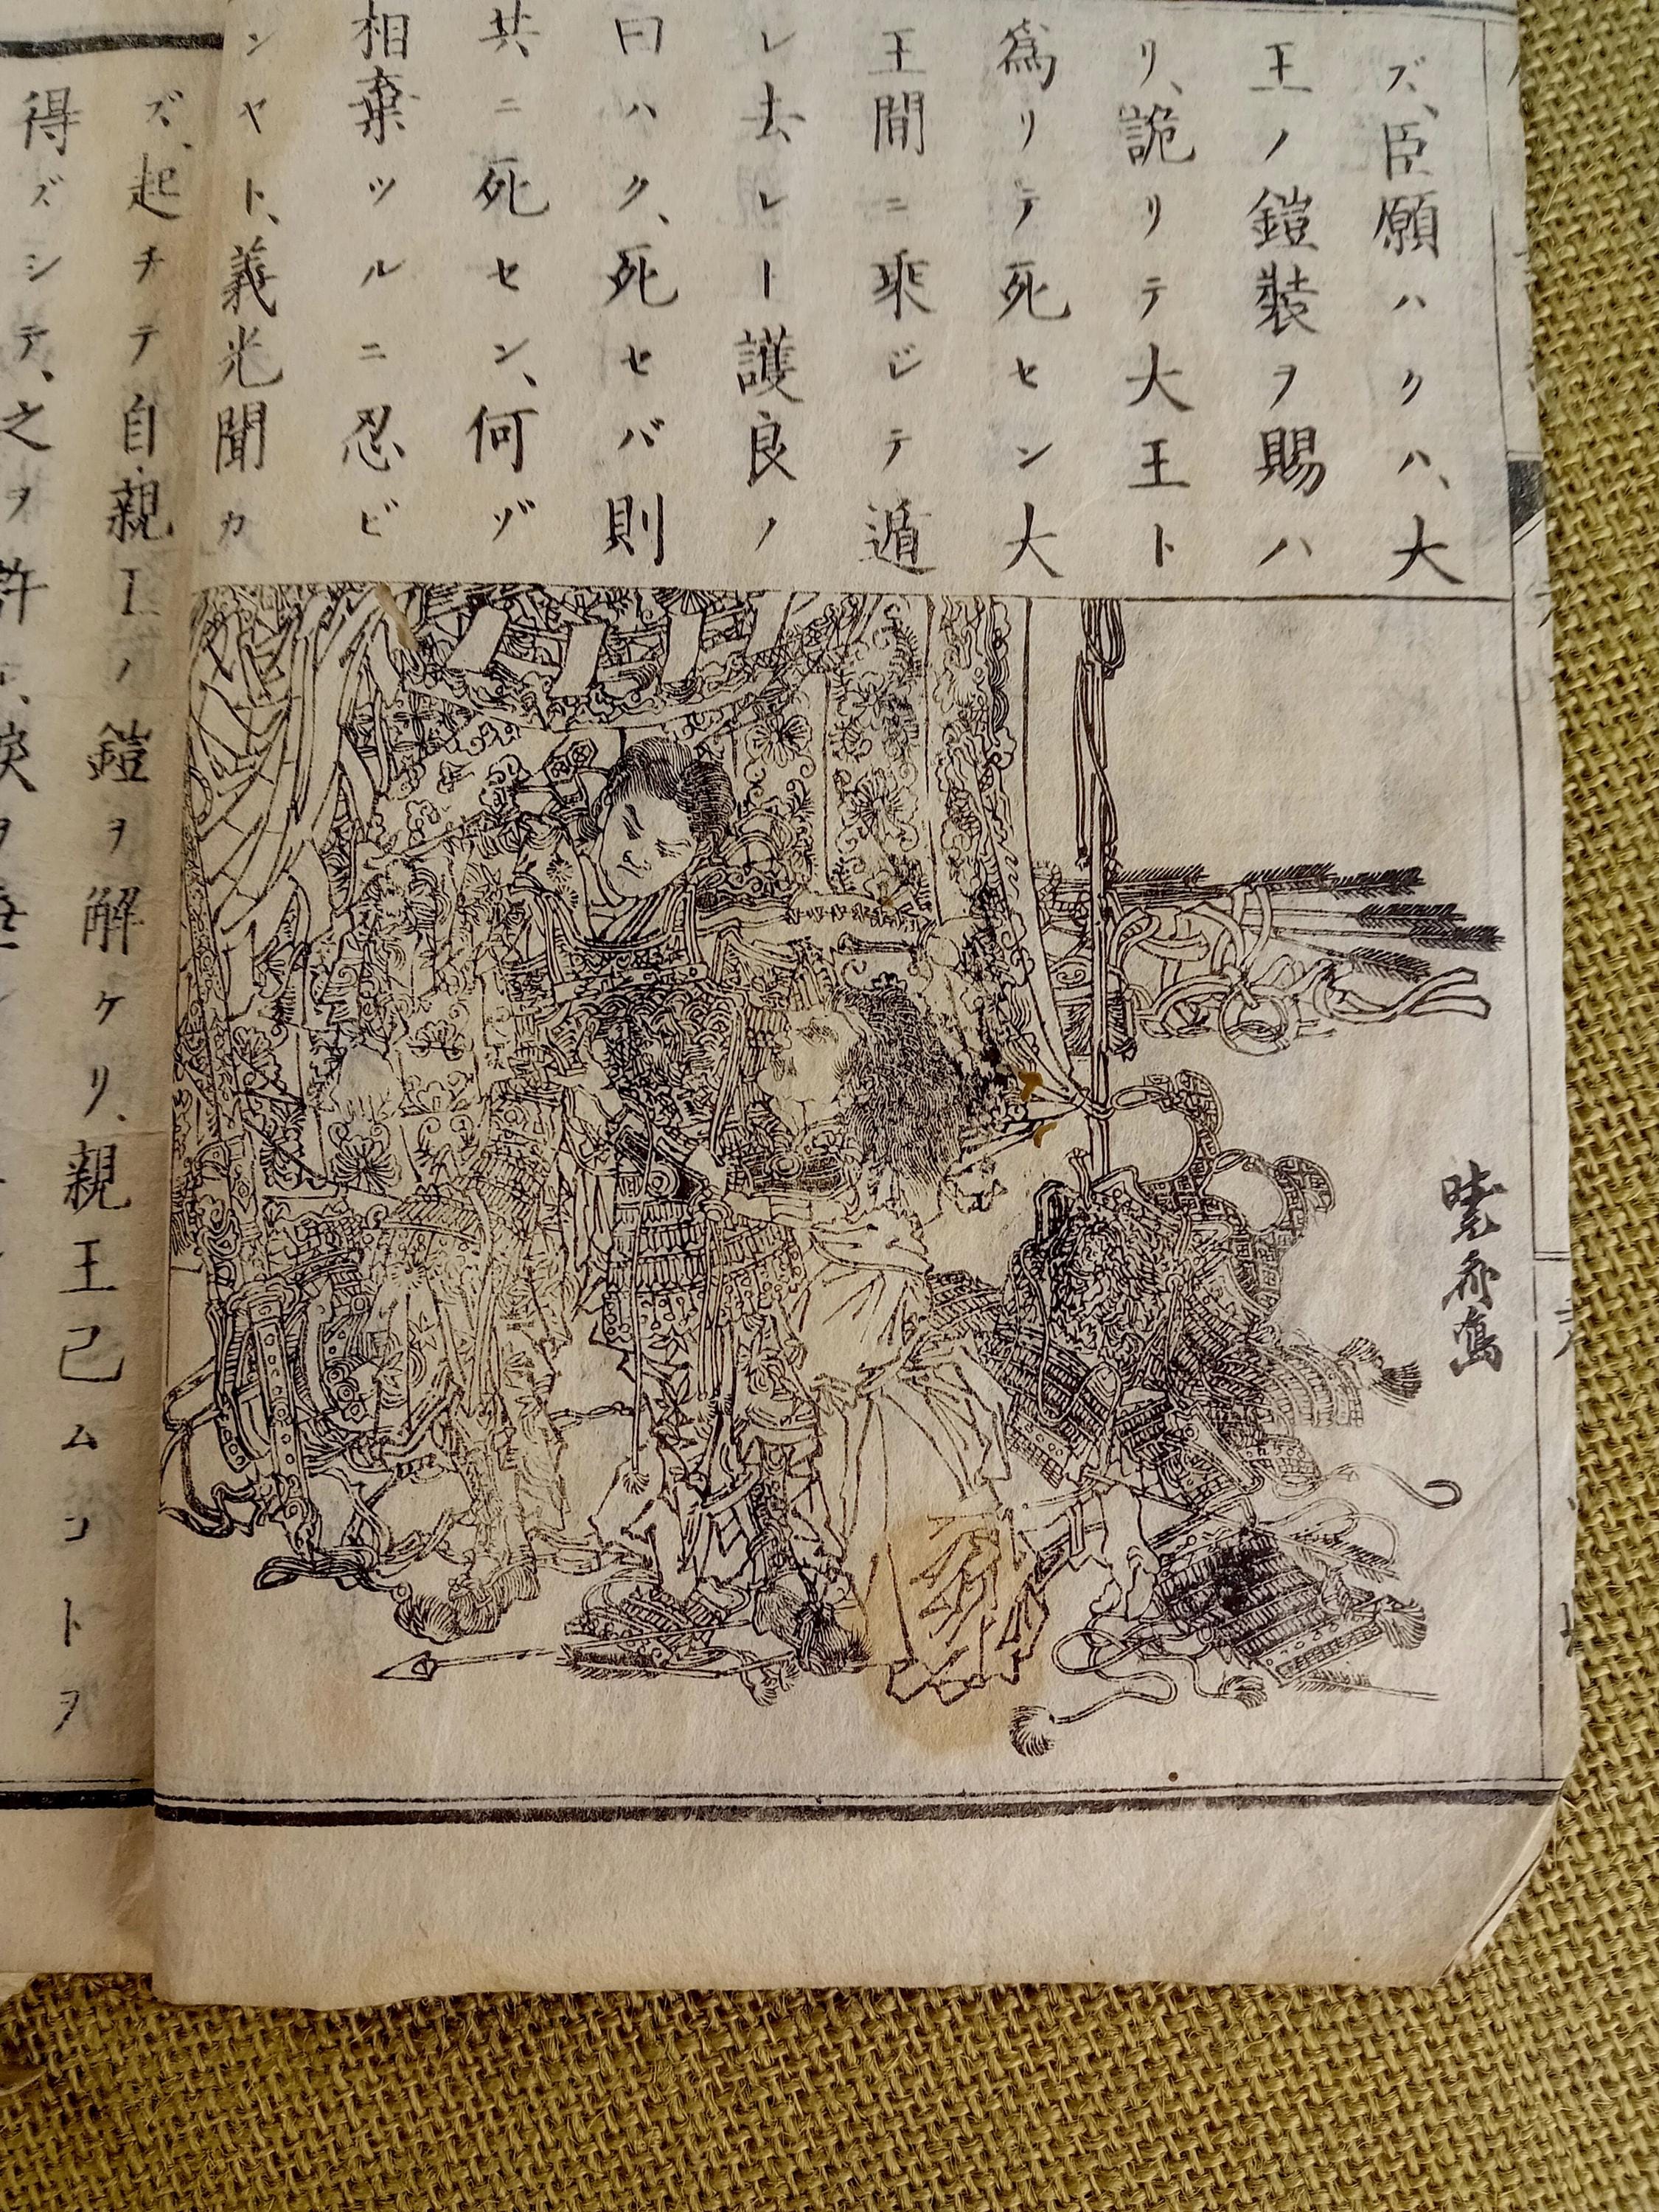 ズ、臣願ハクハ、大
王ノ鎧裝ヲ賜ハ
リ、詭リテ大王ト
爲リテ死セン大
王間ニ乘ジテ遁
レ去レー護良ノ
曰ハク、死セバ則
共ニ死セン、何ゾ
相棄ツルニ忍ビ
ンヤト、義光聞カ
ズ、起チテ自親王ノ鎧ヲ解ケリ、親王已ムコトヲ
得ズシテ、之ヲ許
涙ヲ垂
曉斎